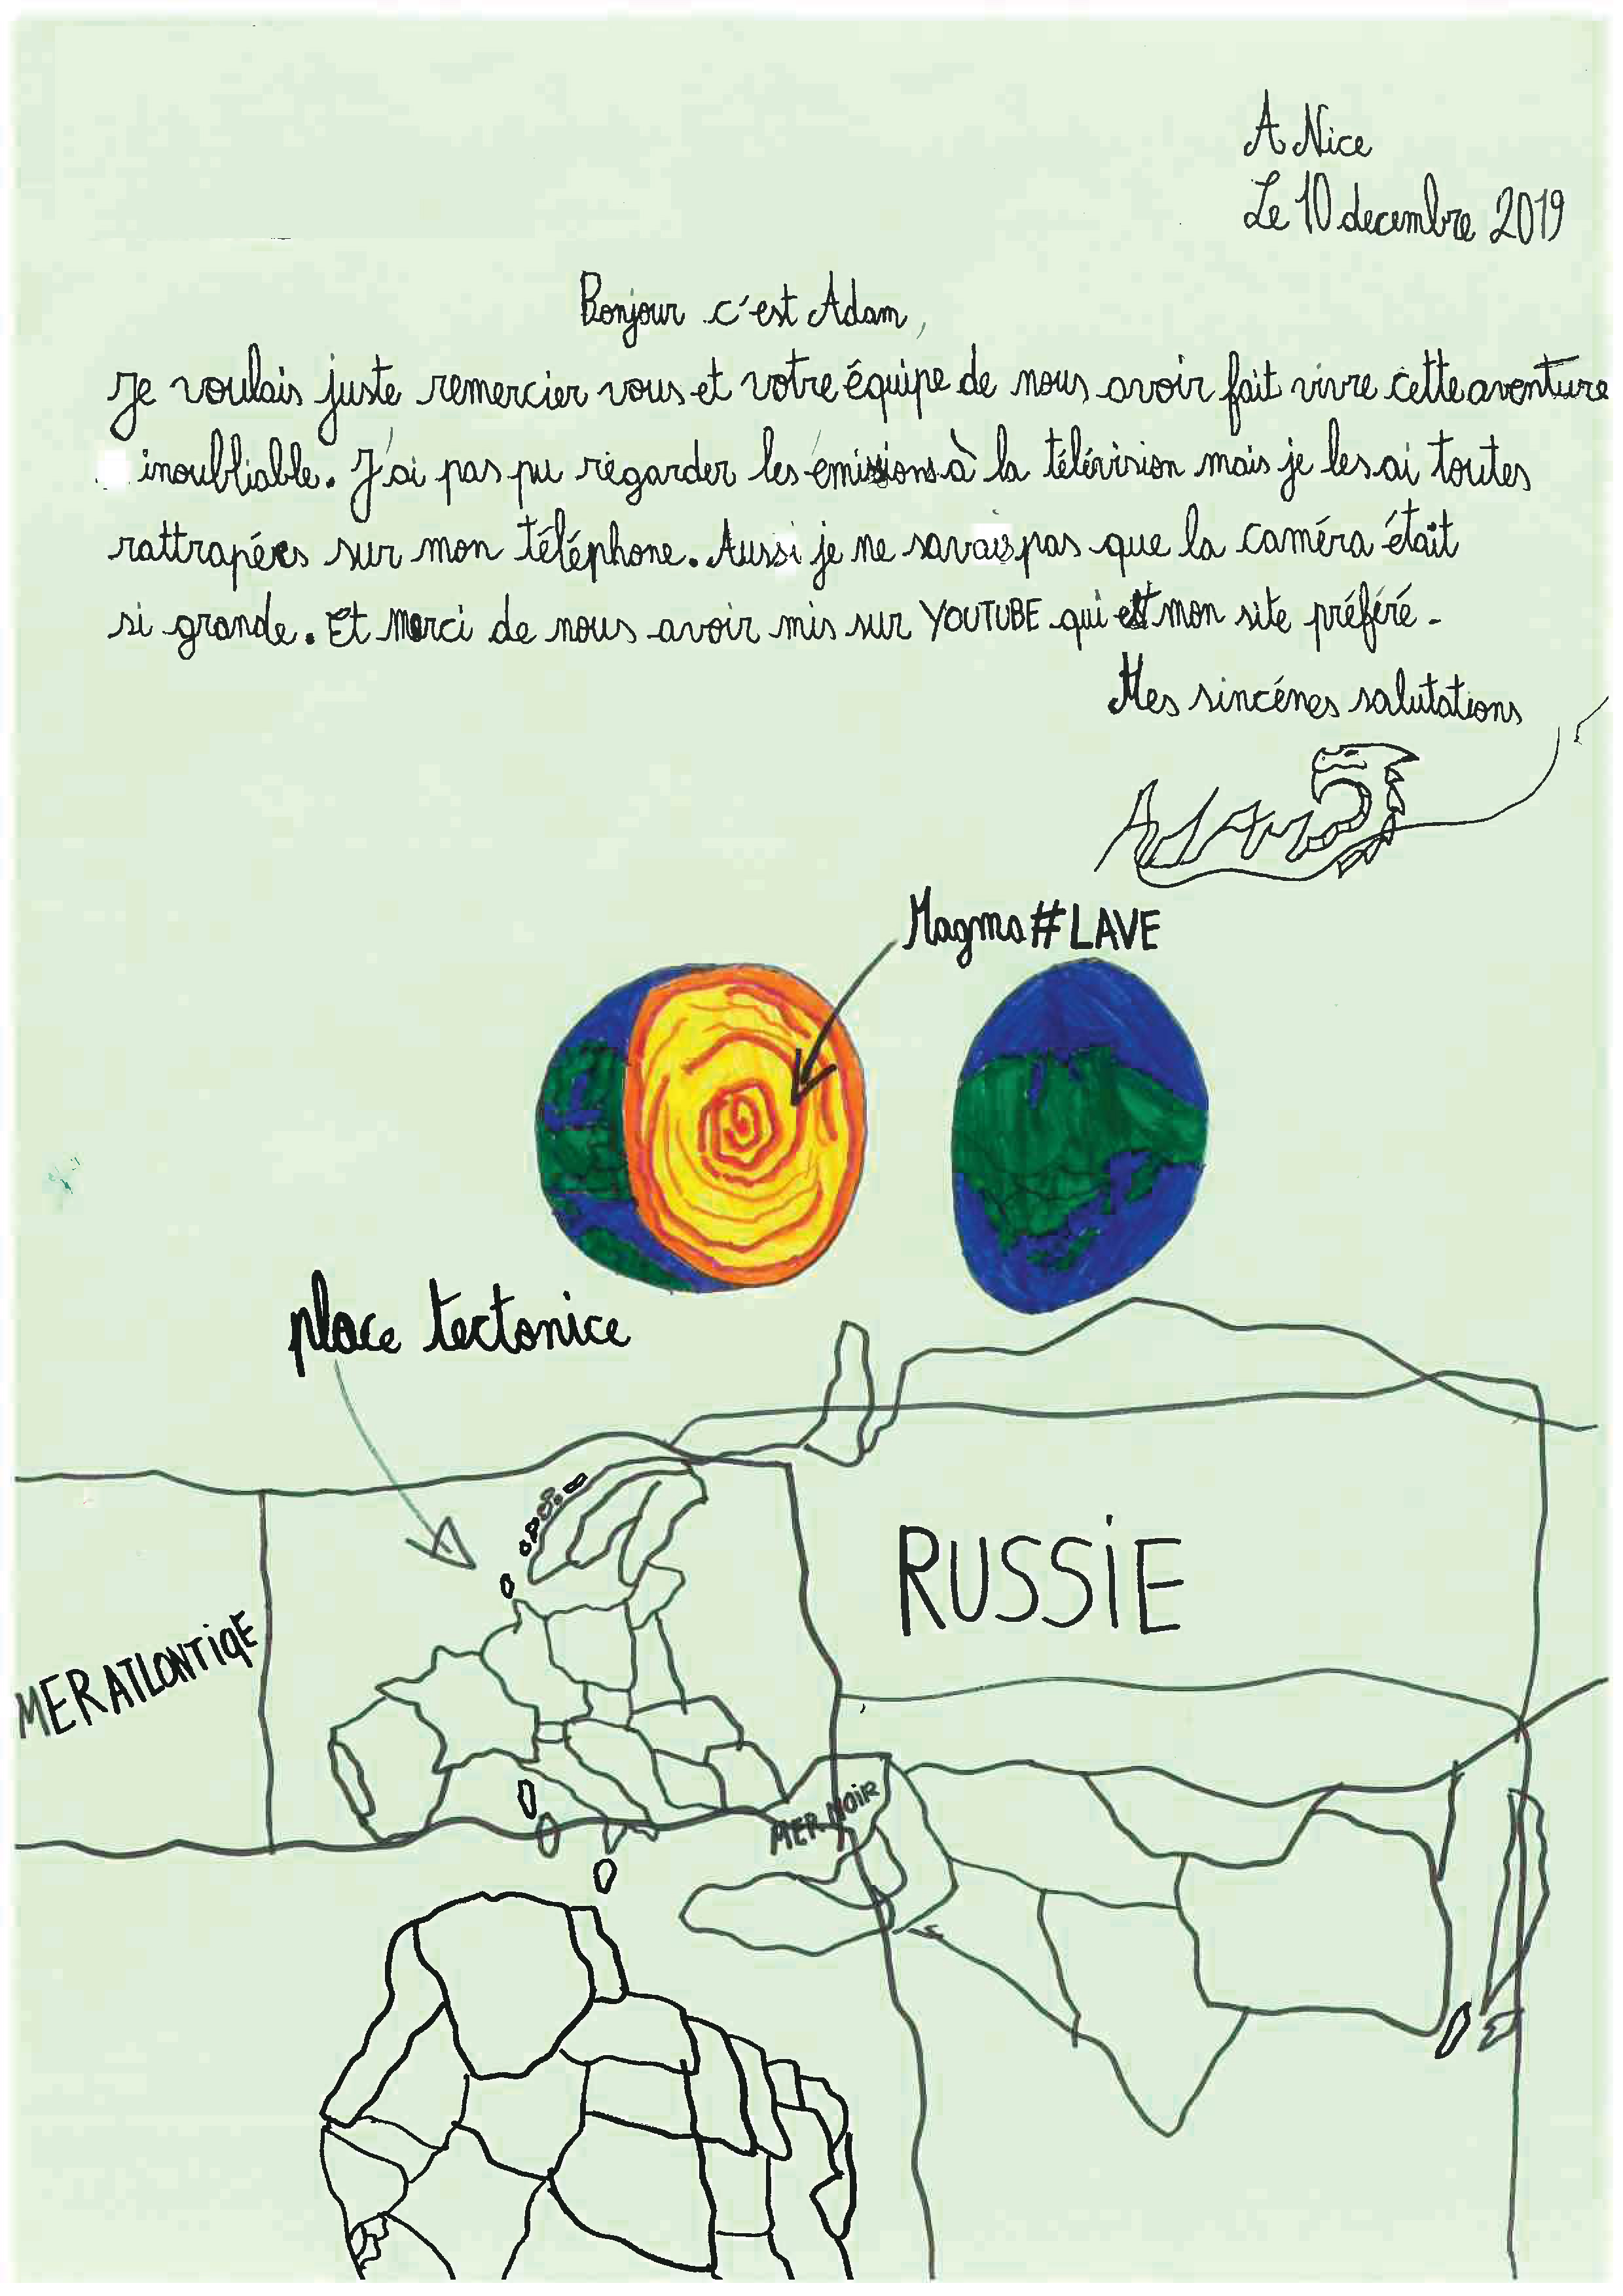 A Nice
Le 10 decembre 2019
Bonjour c'est Adam,
Je voulais juste remercier vous et votre équipe de nous avoir fait vivre cette aventure
inoubliable. J'ai pas pu regarder les émissions à la télévision mais je les ai toutes
rattrapées sur mon téléphone. Aussi je ne savais pas que la caméra était
si grande. Et merci de nous avoir mis sur YOUTUBE qui est mon site préféré.
Mes sincéres salutations
Adam
Magma # LAVE
place tectonice
RUSSiE
MER ATLONTiQE
MER NOiR